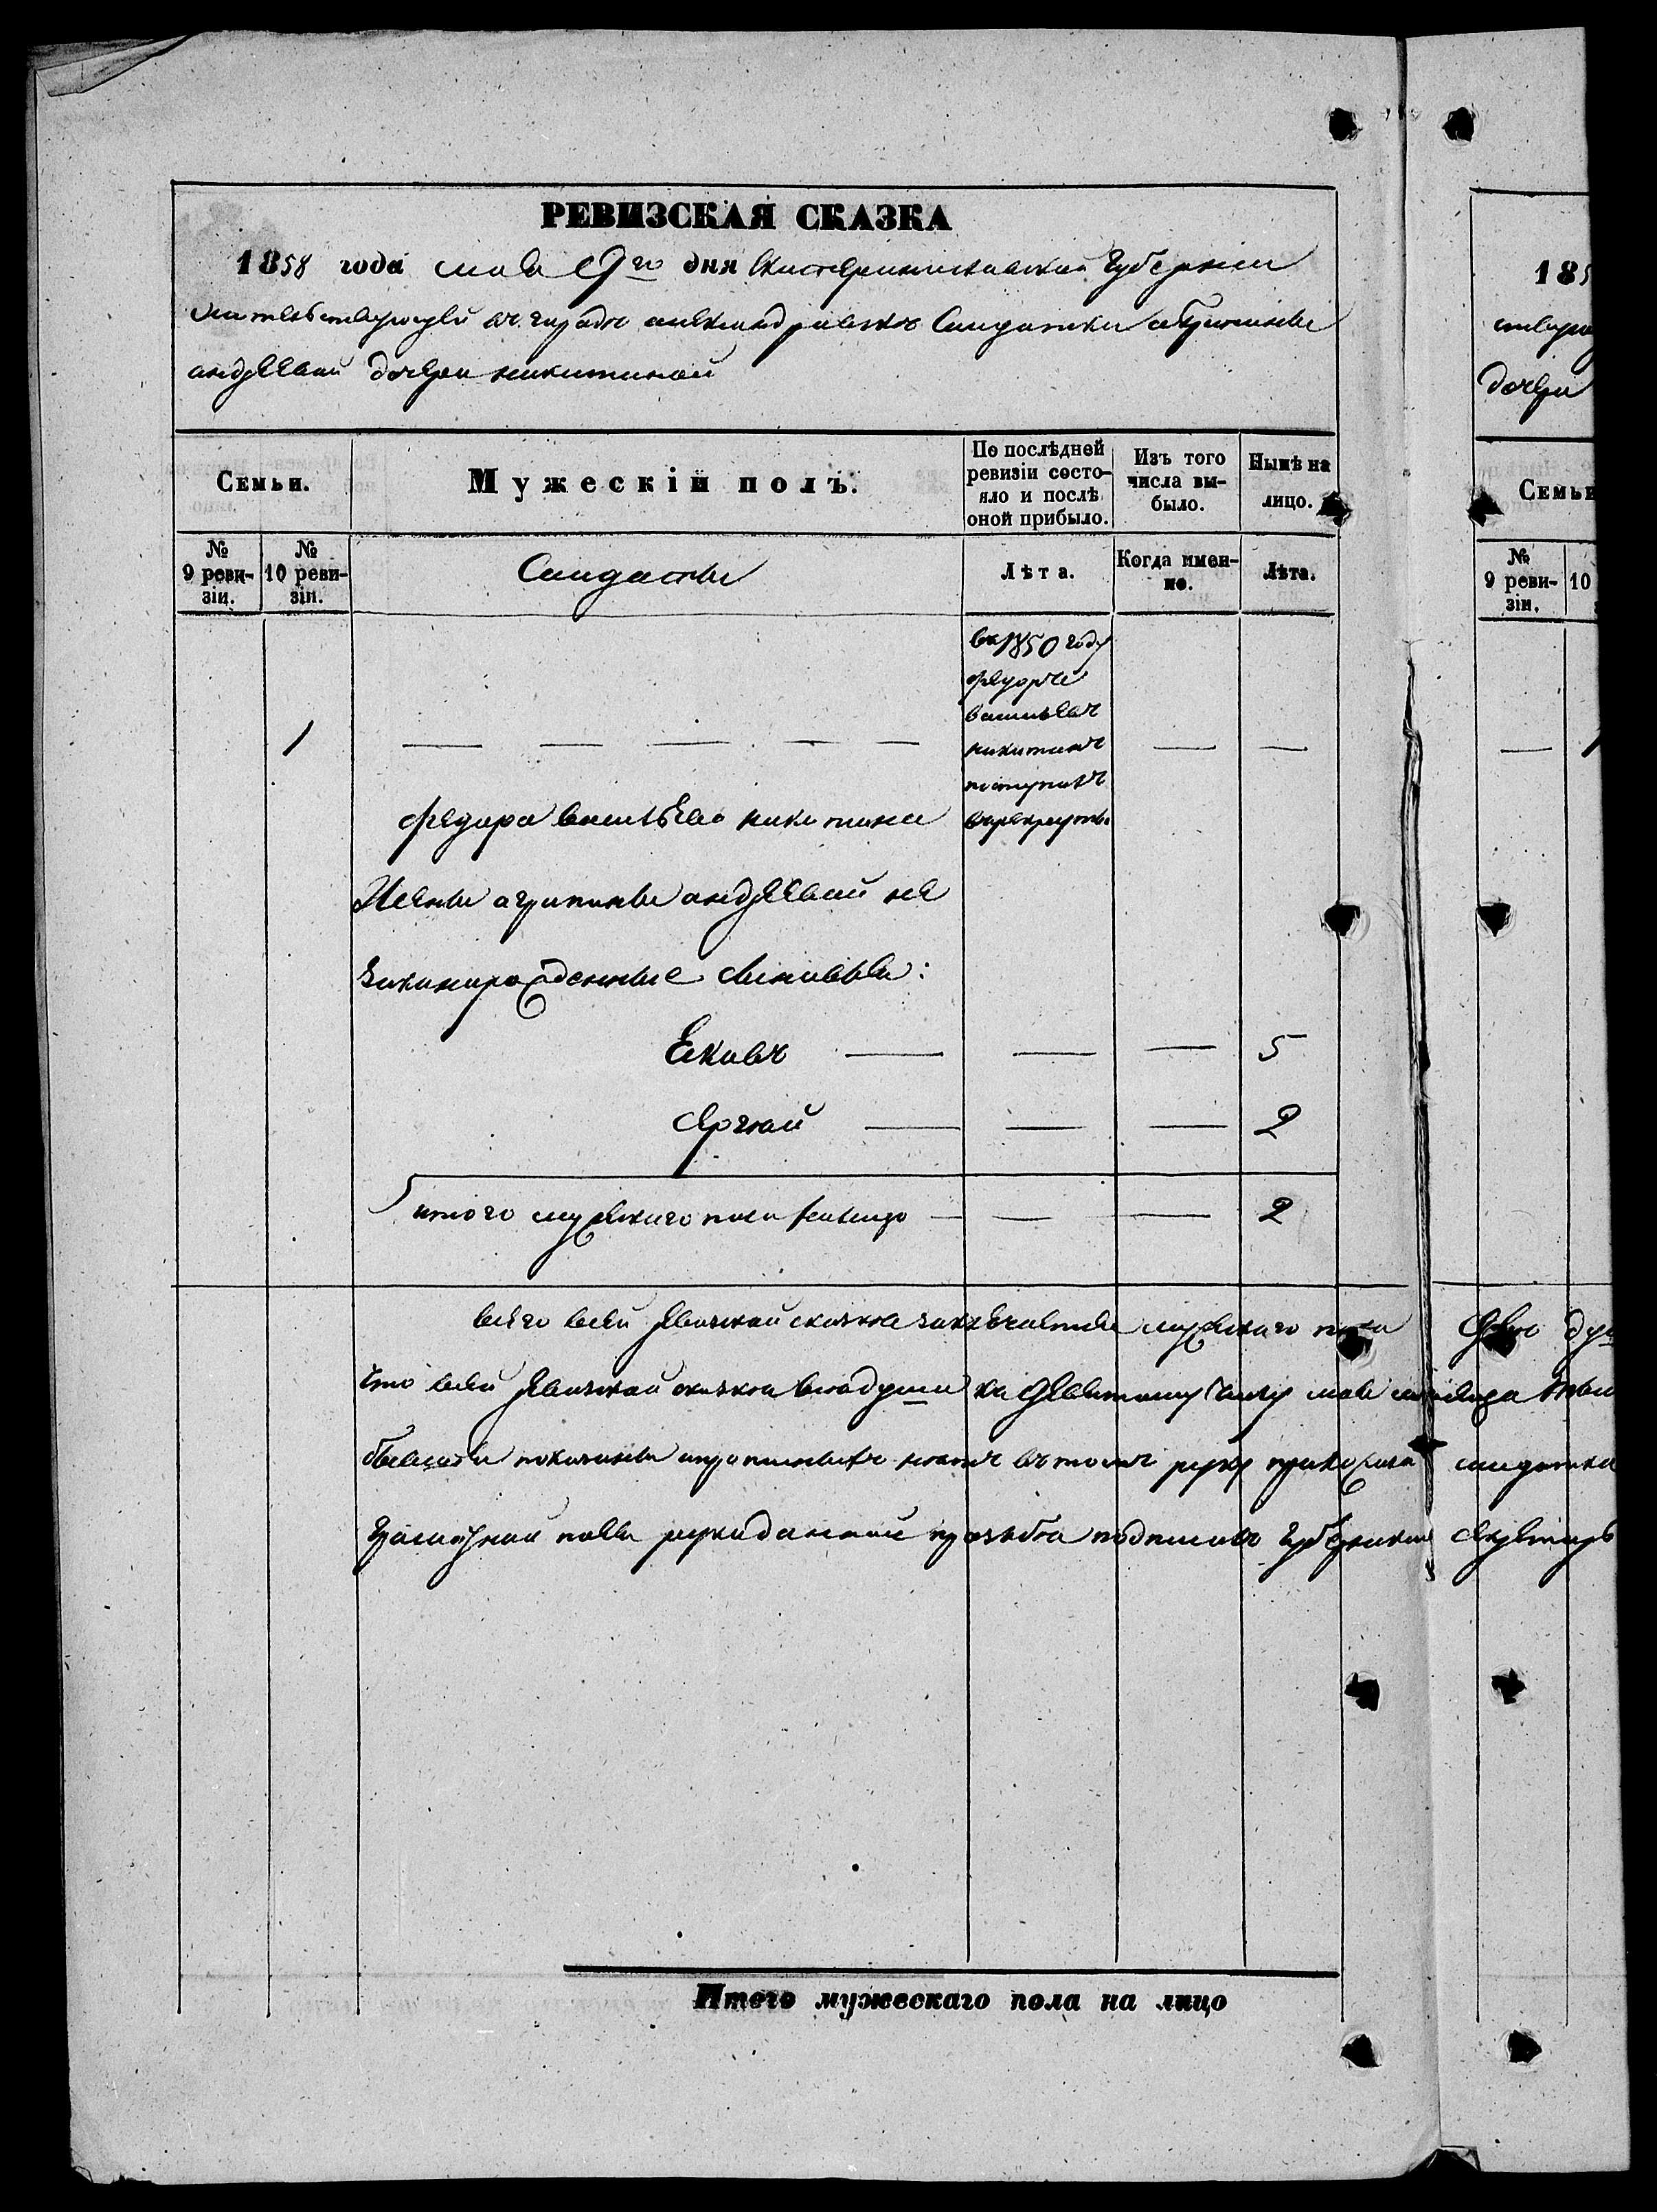 РЕВИЗСКАЯ СКАЗКА
1858 года мая 9го дня Екатеринославской Губернии
жительствующей въ городѣ александровскѣ Салдатки агрипины
андреевой дочери никитиной
Семьи.
Мужескій полъ.
По послѣдней ревизіи состояло и послѣ оной прибыло.
Изъ того числа выбыло.
Нынѣ на лицо.
№ 9 ревизіи.
№ 10 ревизіи.
Салдаты
Лѣта.
Когда именно.
Лѣта.
въ 1850 году
федоръ
васильевъ
никитинъ
поступилъ
врекруты
1
федора васильева никитина
Жены агрипины андреевой не
законорожденные сыновья:
Яковъ 5
сергей 2
итого мужскаго пола налицо 2
всего всей ревизской сказке заключается мужскаго пола две душ
Что всей ревизской сказки все души ка девятому числу мая
показаны въ томъ руку приложила салдатка
по ея рукоданной прозьбе подписалъ Губернский секретарь
Итого мужескаго пола на лицо
185
дочери
Семьи
№ 9 ревизіи.
10